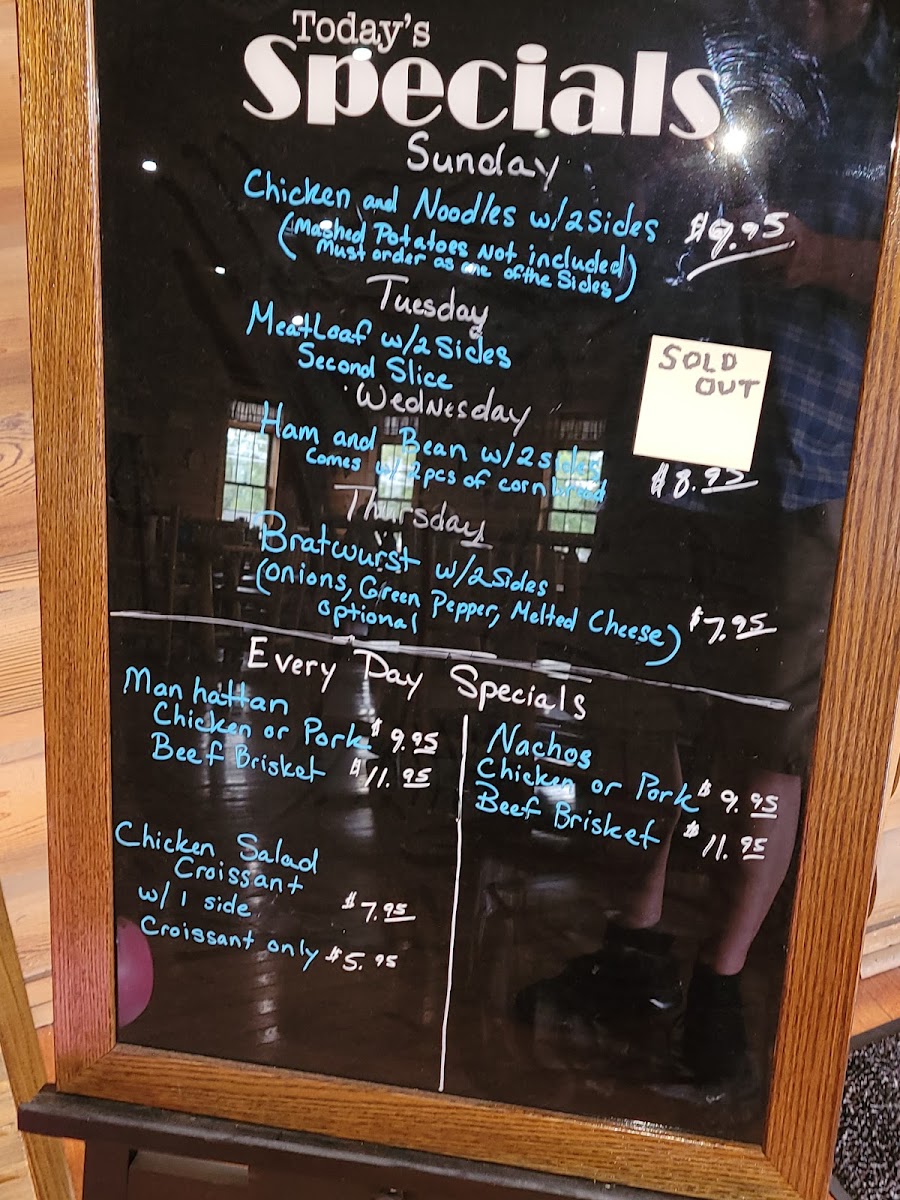 Today's
Specials
Sunday
Chicken and Noodles w/2 Sides $9.95
(Mashed Potatoes Not included
Must order as one of the Sides)
Tuesday
MeatLoaf w/2 Sides
Second Slice
SOLD
OUT
Wednesday
Ham and Bean w/2 sides
Comes w/ 2pcs of cornbread $8.95
Thursday
Bratwurst w/2 Sides
(Onions, Green Pepper, Melted Cheese) $7.95
optional
Every Day Specials
Manhattan
Chicken or Pork $9.95
Beef Brisket $11.95
Chicken Salad
Croissant
w/ 1 side $7.95
Croissant only $5.95
Nachos
Chicken or Pork $9.95
Beef Brisket $11.95